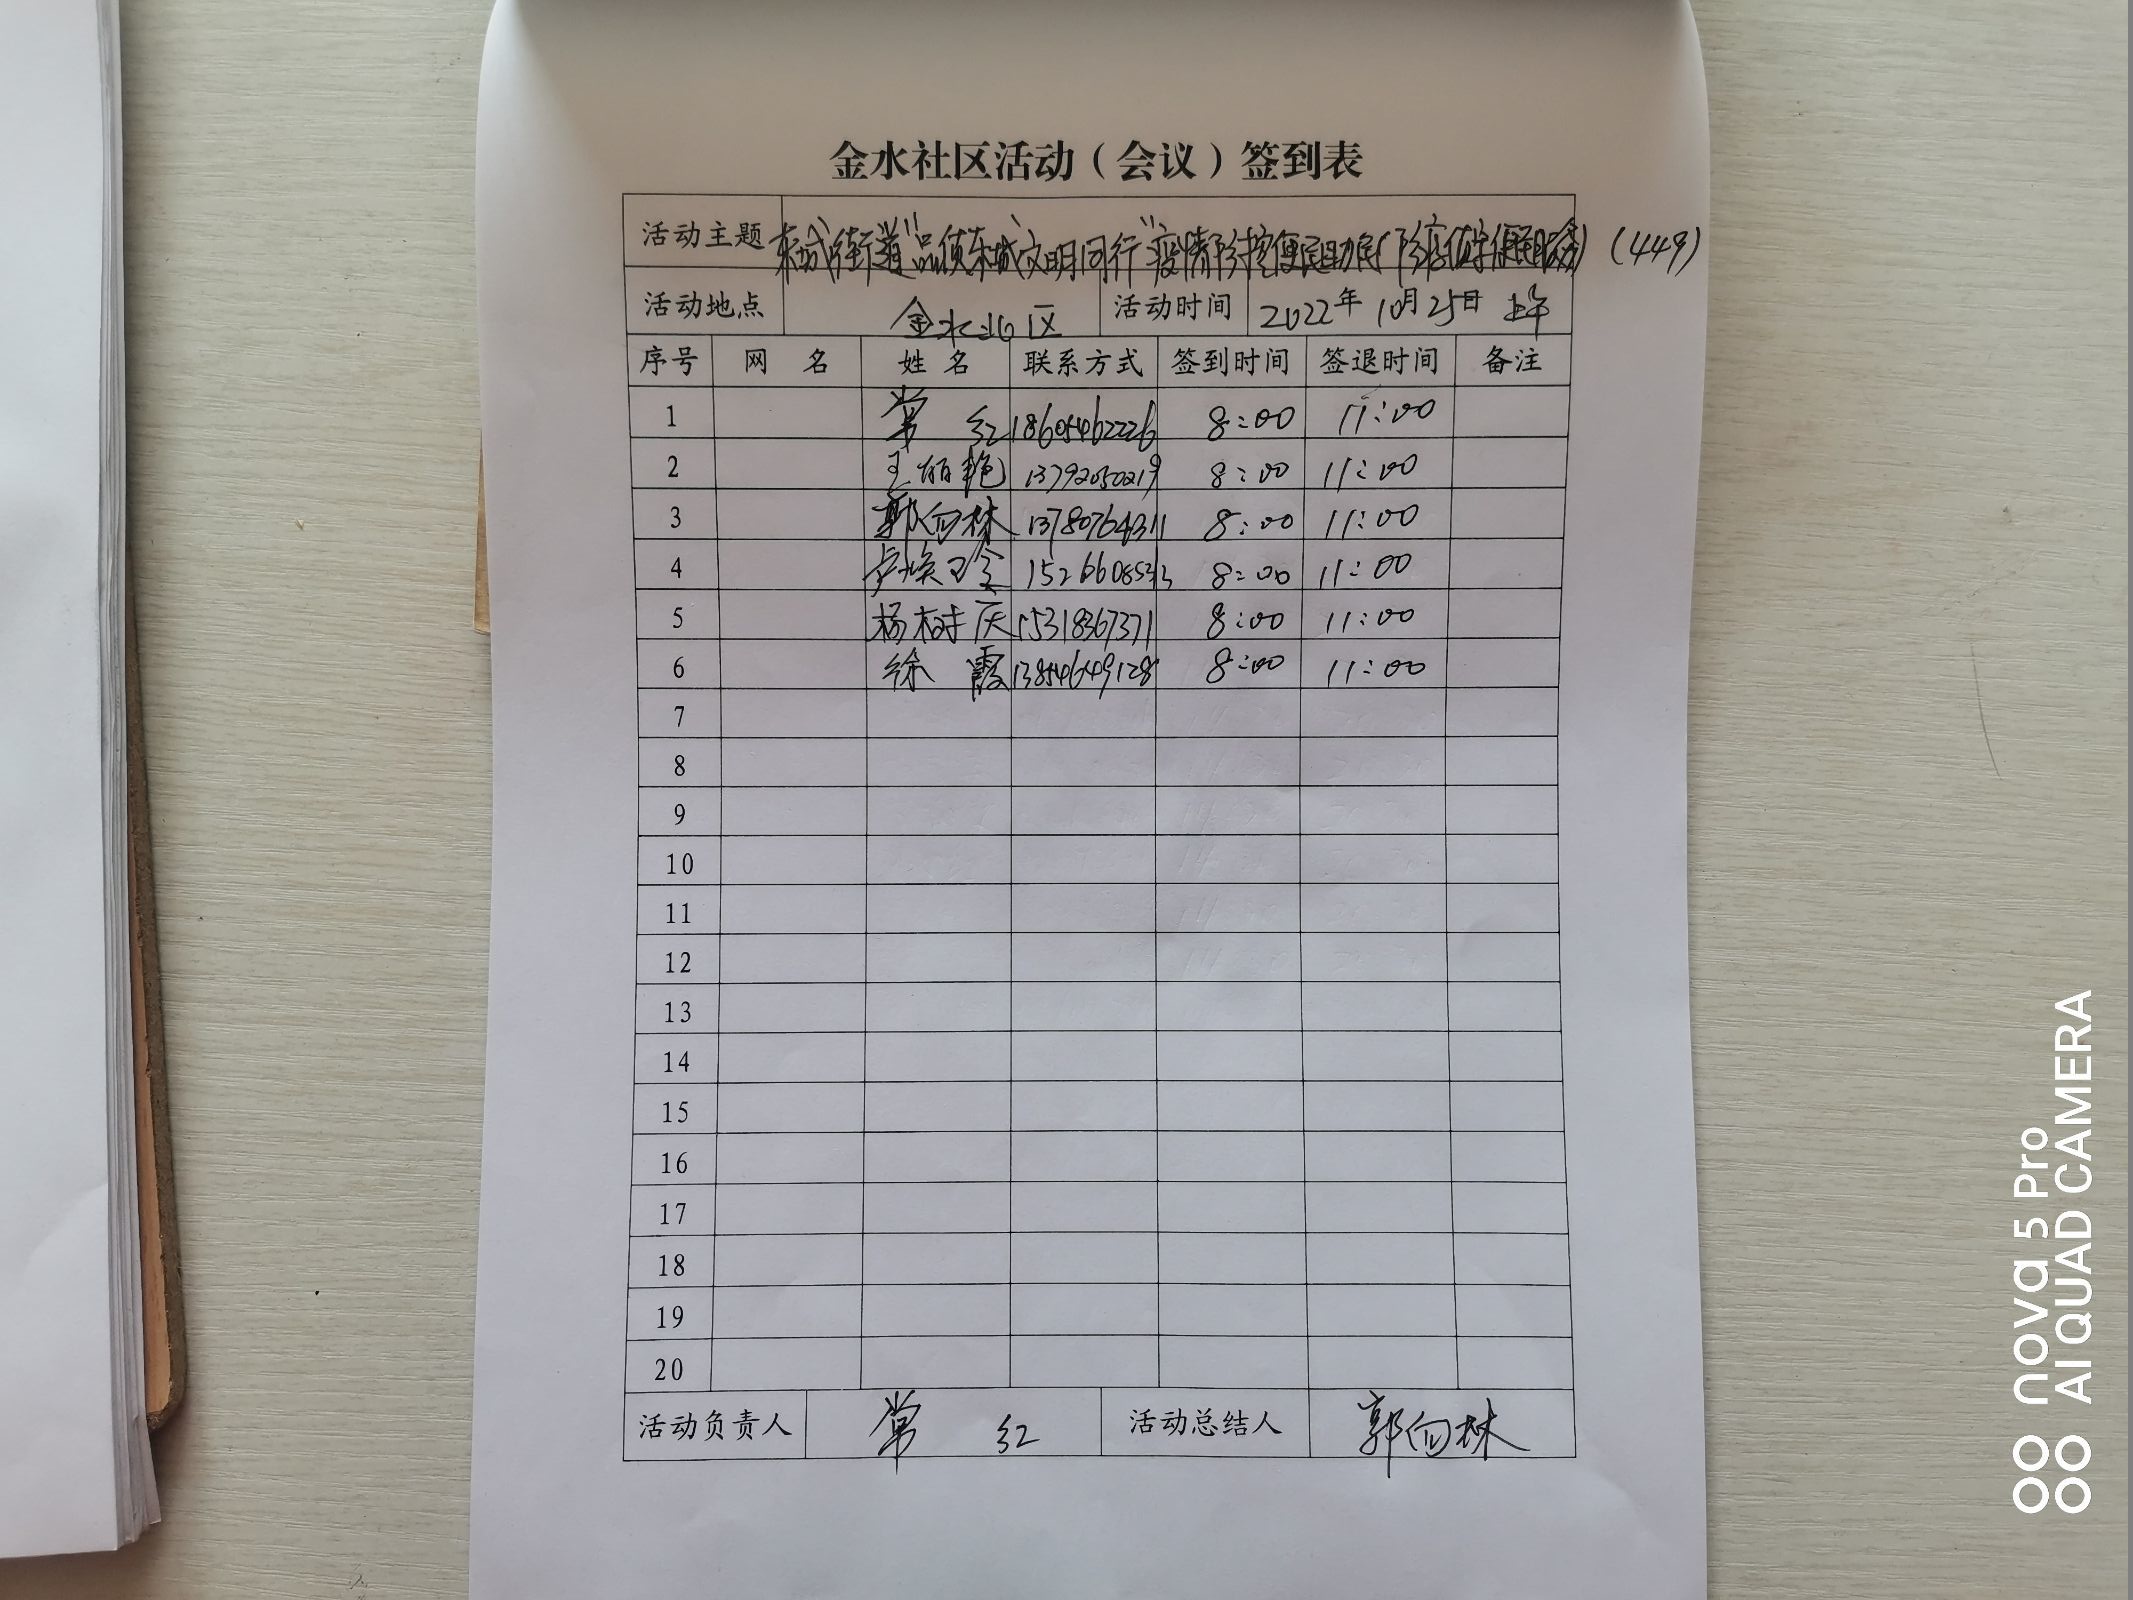 金水社区活动（会议）签到表
活动主题 东城街道"品质东城文明同行"疫情防控便民助民（防疫值守便民服务）（449）
活动地点 金水北区 活动时间 2022年10月25日 上午
序号 网 名 姓 名 联系方式 签到时间 签退时间 备注
1 常 红 18605462226 8:00 11:00
2 王 艳 13792050219 8:00 11:00
3 郭向林 13780764311 8:00 11:00
4 卢焕 8:00 11:00
5 杨树庆 15318367371 8:00 11:00
6 徐 霞 13854649128 8:00 11:00
7
8
9
10
11
12
13
14
15
16
17
18
19
20
活动负责人 常 红 活动总结人 郭向林
nova 5 Pro
AI QUAD CAMERA